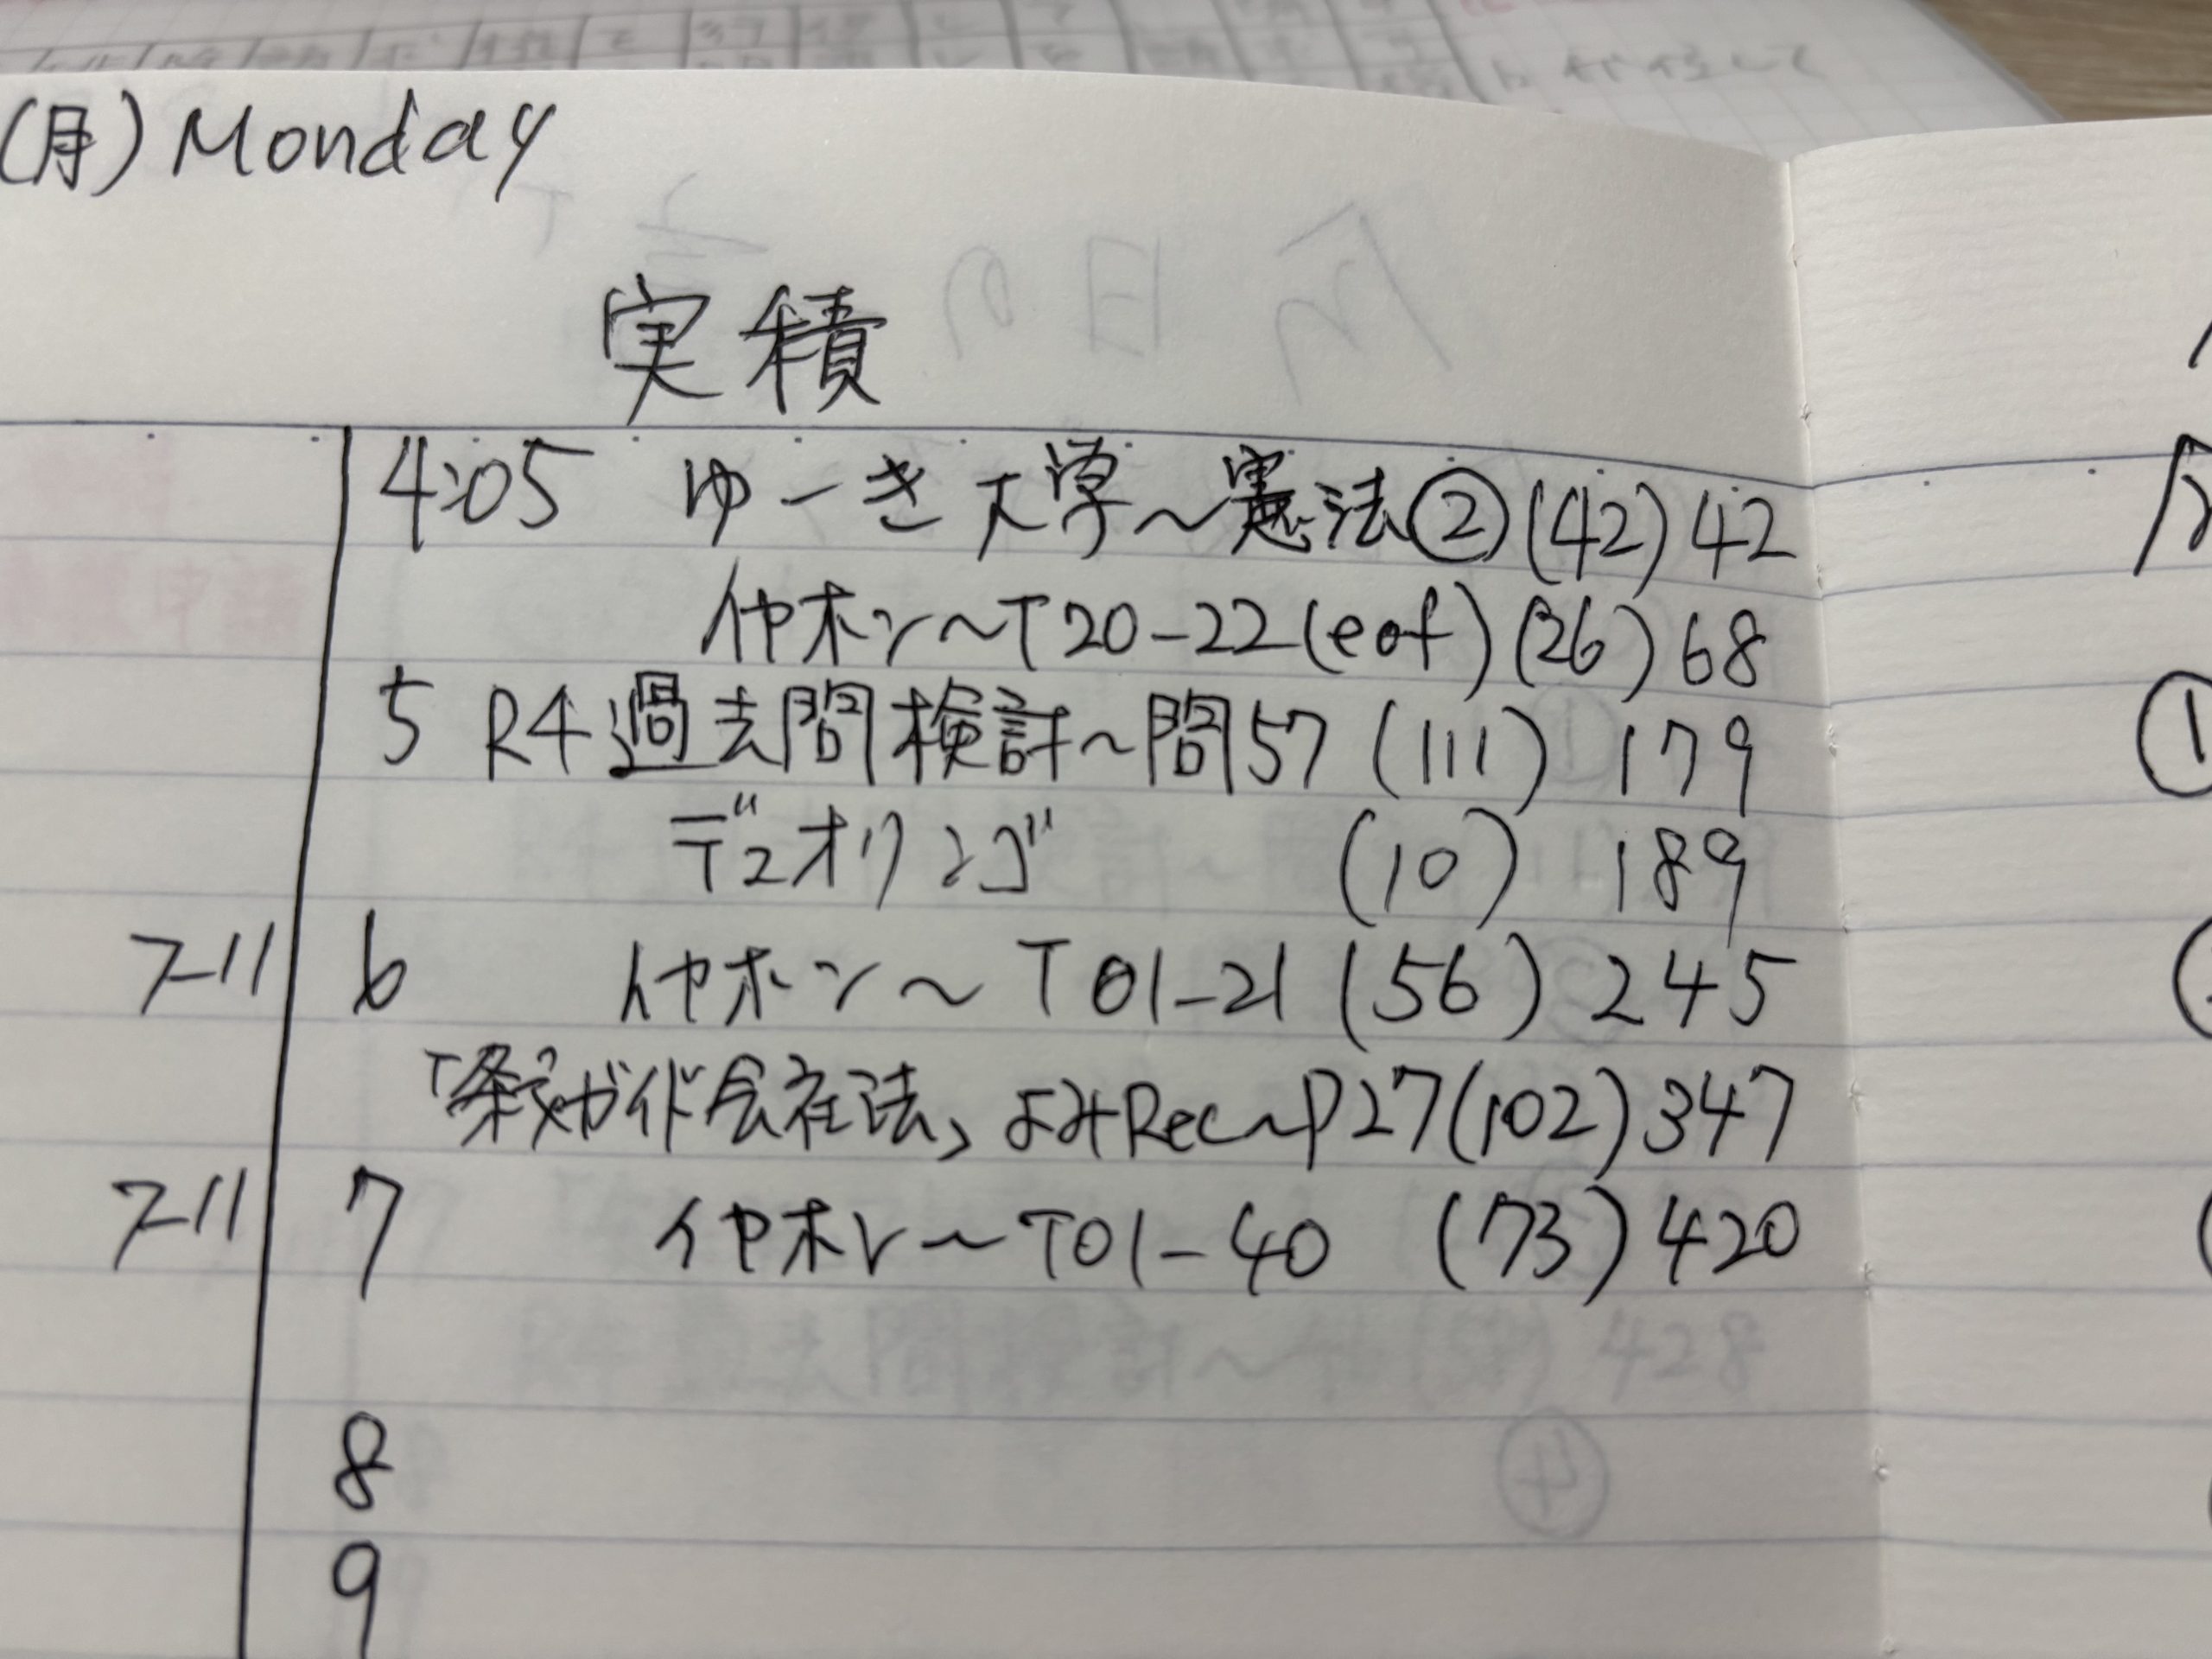 (月) Monday
実積
4:05 ゆーき大学～憲法②(42)42
イヤホン～T20-22(eof)(26)68
5 R4過去問検討～問57 (111) 179
デュオリンゴ (10) 189
7-11 6 イヤホン～T01-21(56)245
「条文ガイド会社法」よみRec～P27(102)347
7-11 7 イヤホン～T01-40 (73)420
8
9